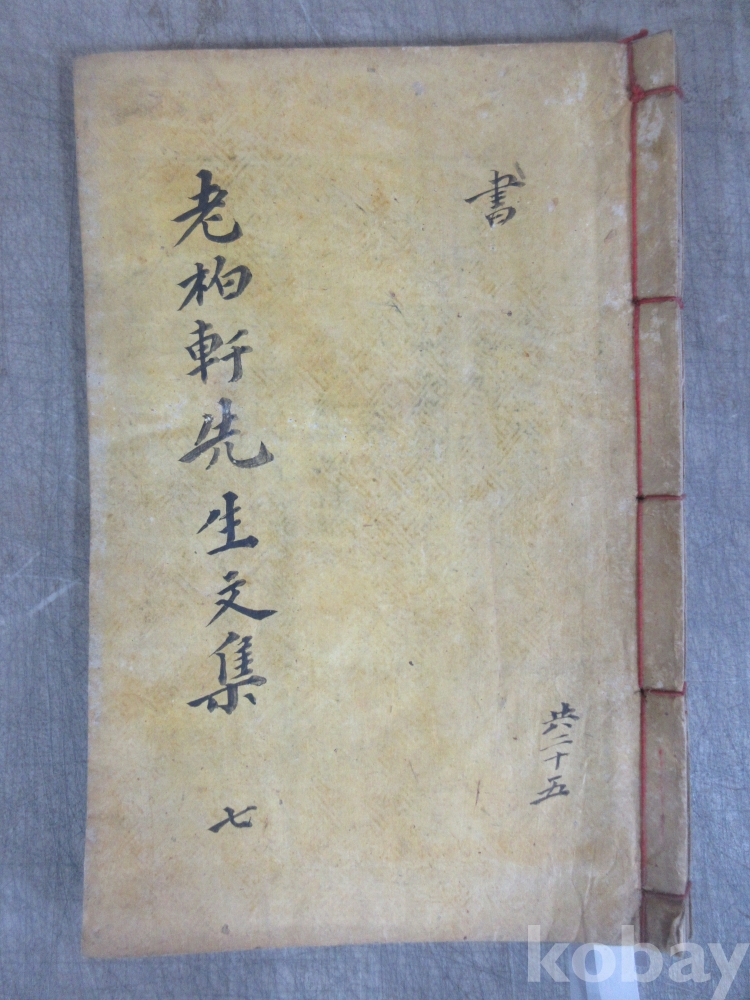 書
共二十五
老柏軒先生文集 七
kobay